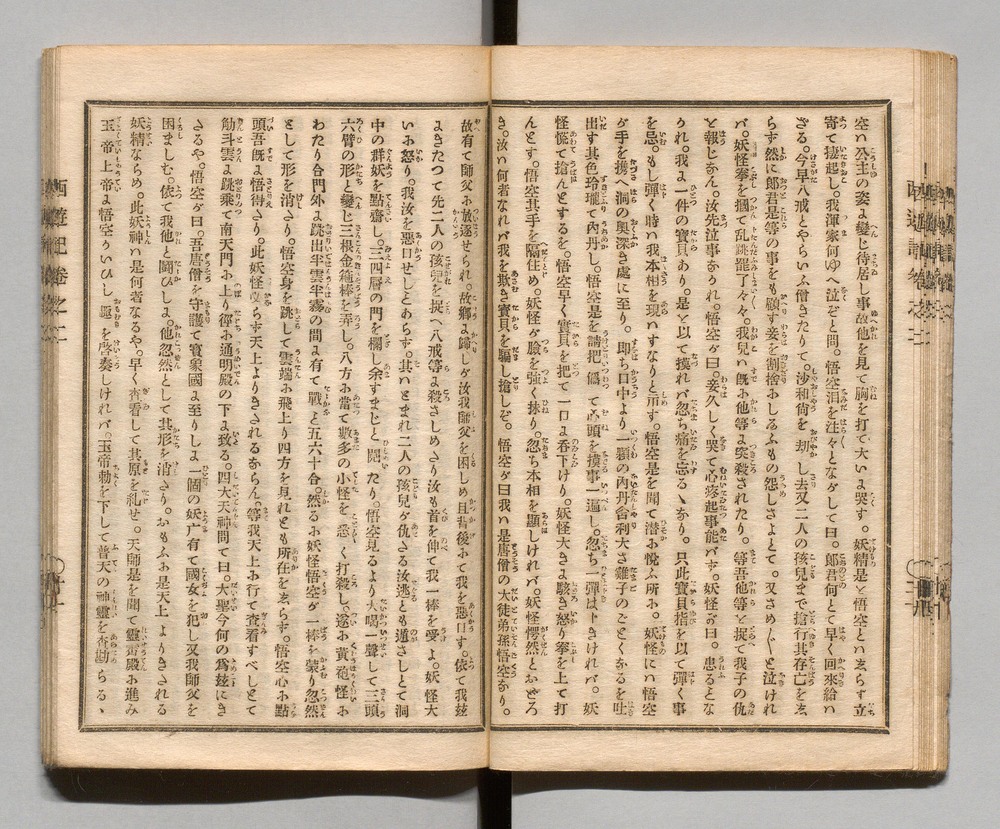 空ハ公主の姿に變じ待居し事故他を見て胸を打て大いに哭す。妖精是と悟空とハゑらず立
寄て摟起し。我渾家何ゆへ泣ぞと問。悟空泪を注々とながして曰。郎君何とて早く回來給ハ
ざる。今早八戒とやらいふ僧きたりて。沙和尙を刧し去又二人の孩兒まで搶行其存亡をゑ
らず然に郎君是等の事をも顧ず妾を割捨おしるふもの怨しさよとて。又さめ〲と泣けれ
バ。妖怪拳を摑て乱跳罷了々々。我兒ハ旣お他等に突殺されたり。等吾他等と捉て我子の仇
と報じなん。汝先泣事なかれ。悟空ガ曰。妾久しく哭て心疼起事能バず。妖怪お曰。患るとな
かれ。我に一件の寶貝あり。是と以て摸れバ忽ち痛を忘るゝなり。只此寶貝指を以て彈く事
を忌。もし彈く時ハ我本相を現ハすなりと示す。悟空是を聞て潜お悅ふ所お。妖怪にハ悟空
ガ手を携へ洞の奥深き處に至り。卽ち口中より一顆の內丹舎利大さ雞子のごとくなるを吐
出す其色玲瓏て內丹し。悟空是を請把僞て心頭を摸事一遍し。忽ち一彈はトきけれバ。妖
怪慌て搶んとするを。悟空早く寳貝を把て一口に呑下けり。妖怪大さに駭き怒り拳を上て打
んとす。悟空其手を隔住め。妖怪ガ臉を强く抹り。忽ち本相を顯しけれバ。妖怪愕然とおどろ
き。汝ハ何者なれバ我を欺き寳貝を騙し搶しぞ。悟空ガ曰我ハ是唐僧の大徒弟孫悟空なり。
故有て師父お放逐せられ。故鄉に歸しガ汝我師父を困しめ且背後おて我を惡口す。依て我玆
にきたつて先二人の孩兒を捉へ八戒等に殺さしめたり汝も首を伸て我一捧を受よ。妖怪大
いお怒り。我汝を惡口せしとあらず。其ハとまれ二人の孩兒ガ仇さる汝逃とも遁さしとて洞
中の群妖を點齋し。三四層の門を欄し余すまじと鬨たり。悟空見るより大喝一聲して三頭
六臂の形と變じ三根金箍棒を弄し。八方お當て數多の小怪を悉く打殺し。遂お黄砲怪お
わたり合門外に跳出半雲半霧の間に有て戰と五六十合。然るお妖怪悟空ガ一棒を蒙り忽然
として形を消さり。悟空身を跳して雲端お飛上り四方を見れとも所在をゑらず。悟空心お點
頭吾旣に悟得さり。此妖怪必らず天上よりきされるならん。等我天上お行て查看すべしとて
觔斗雲に跳乘て南天門お上り徑お通明殿の下に致る。四大天神問て曰。大聖今何の爲玆にき
さるや。悟空ガ曰。吾唐僧を守護て寳象國に至りしに一個の妖广有て國女を犯し又我師父を
困ましむ。依て我他と鬪ひしに他忽然として其形を消さり。おもふお是天上よりきされる
妖精ならめ。此妖神ハ是何者なるや。早く查看して其原を糺せ。天師是を聞て靈霄殿お進み
玉帝上帝に悟空ガいひし趣を啓奏しけれバ。玉帝勅を下して普天の神靈を查勘らるゝ
西遊記卷之二